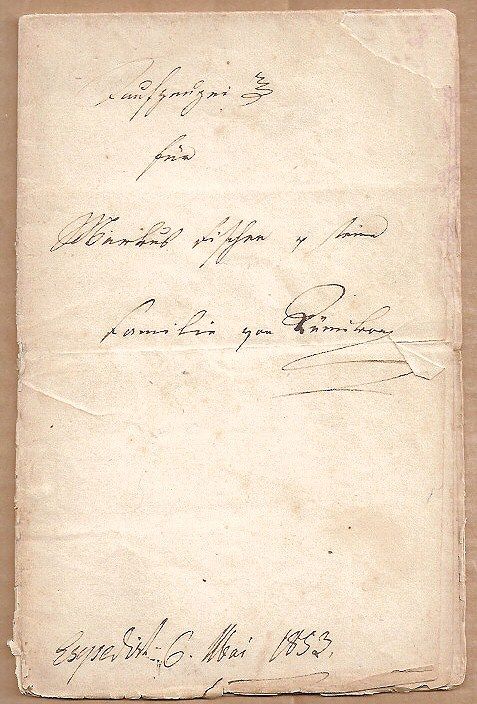 Taufzeugniß
für
Markus Fischer u seine
Familie von Rümikon
Expedirt: 6. Mai 1853.